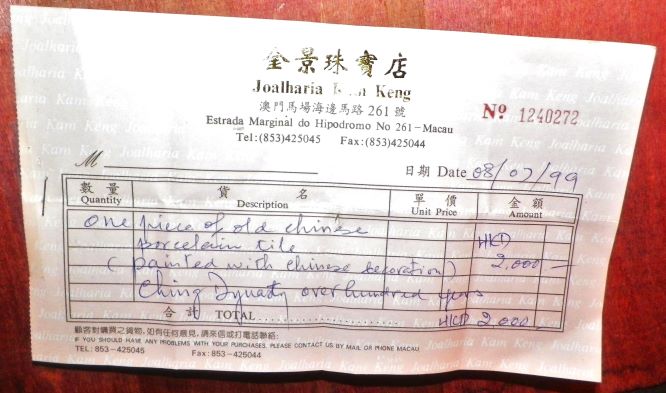 金景珠寶店
Joalharia Kam Keng
澳門馬場海邊馬路 261 號
Estrada Marginal do Hipodromo No 261-Macau
Tel:(853)425045 Fax:(853)425044
Nº 1240272
M
日期 Date 08/07/99
數量 貨名 單價 金額
Quantity Description Unit Price Amount
One piece of old chinese
porcelain tile HKD
(painted with chinese decoration) 2,000 —
Ching Dynasty over hundred years
合計 TOTAL HKD 2,000 —
顧客對購買之貨物,如有任何意見,請來信或打電話聯絡:
IF YOU SHOULD HAVE ANY PROBLEMS WITH YOUR PURCHASES, PLEASE CONTACT US BY MAIL OR PHONE MACAU
TEL: 853-425045 Fax: 853-425044